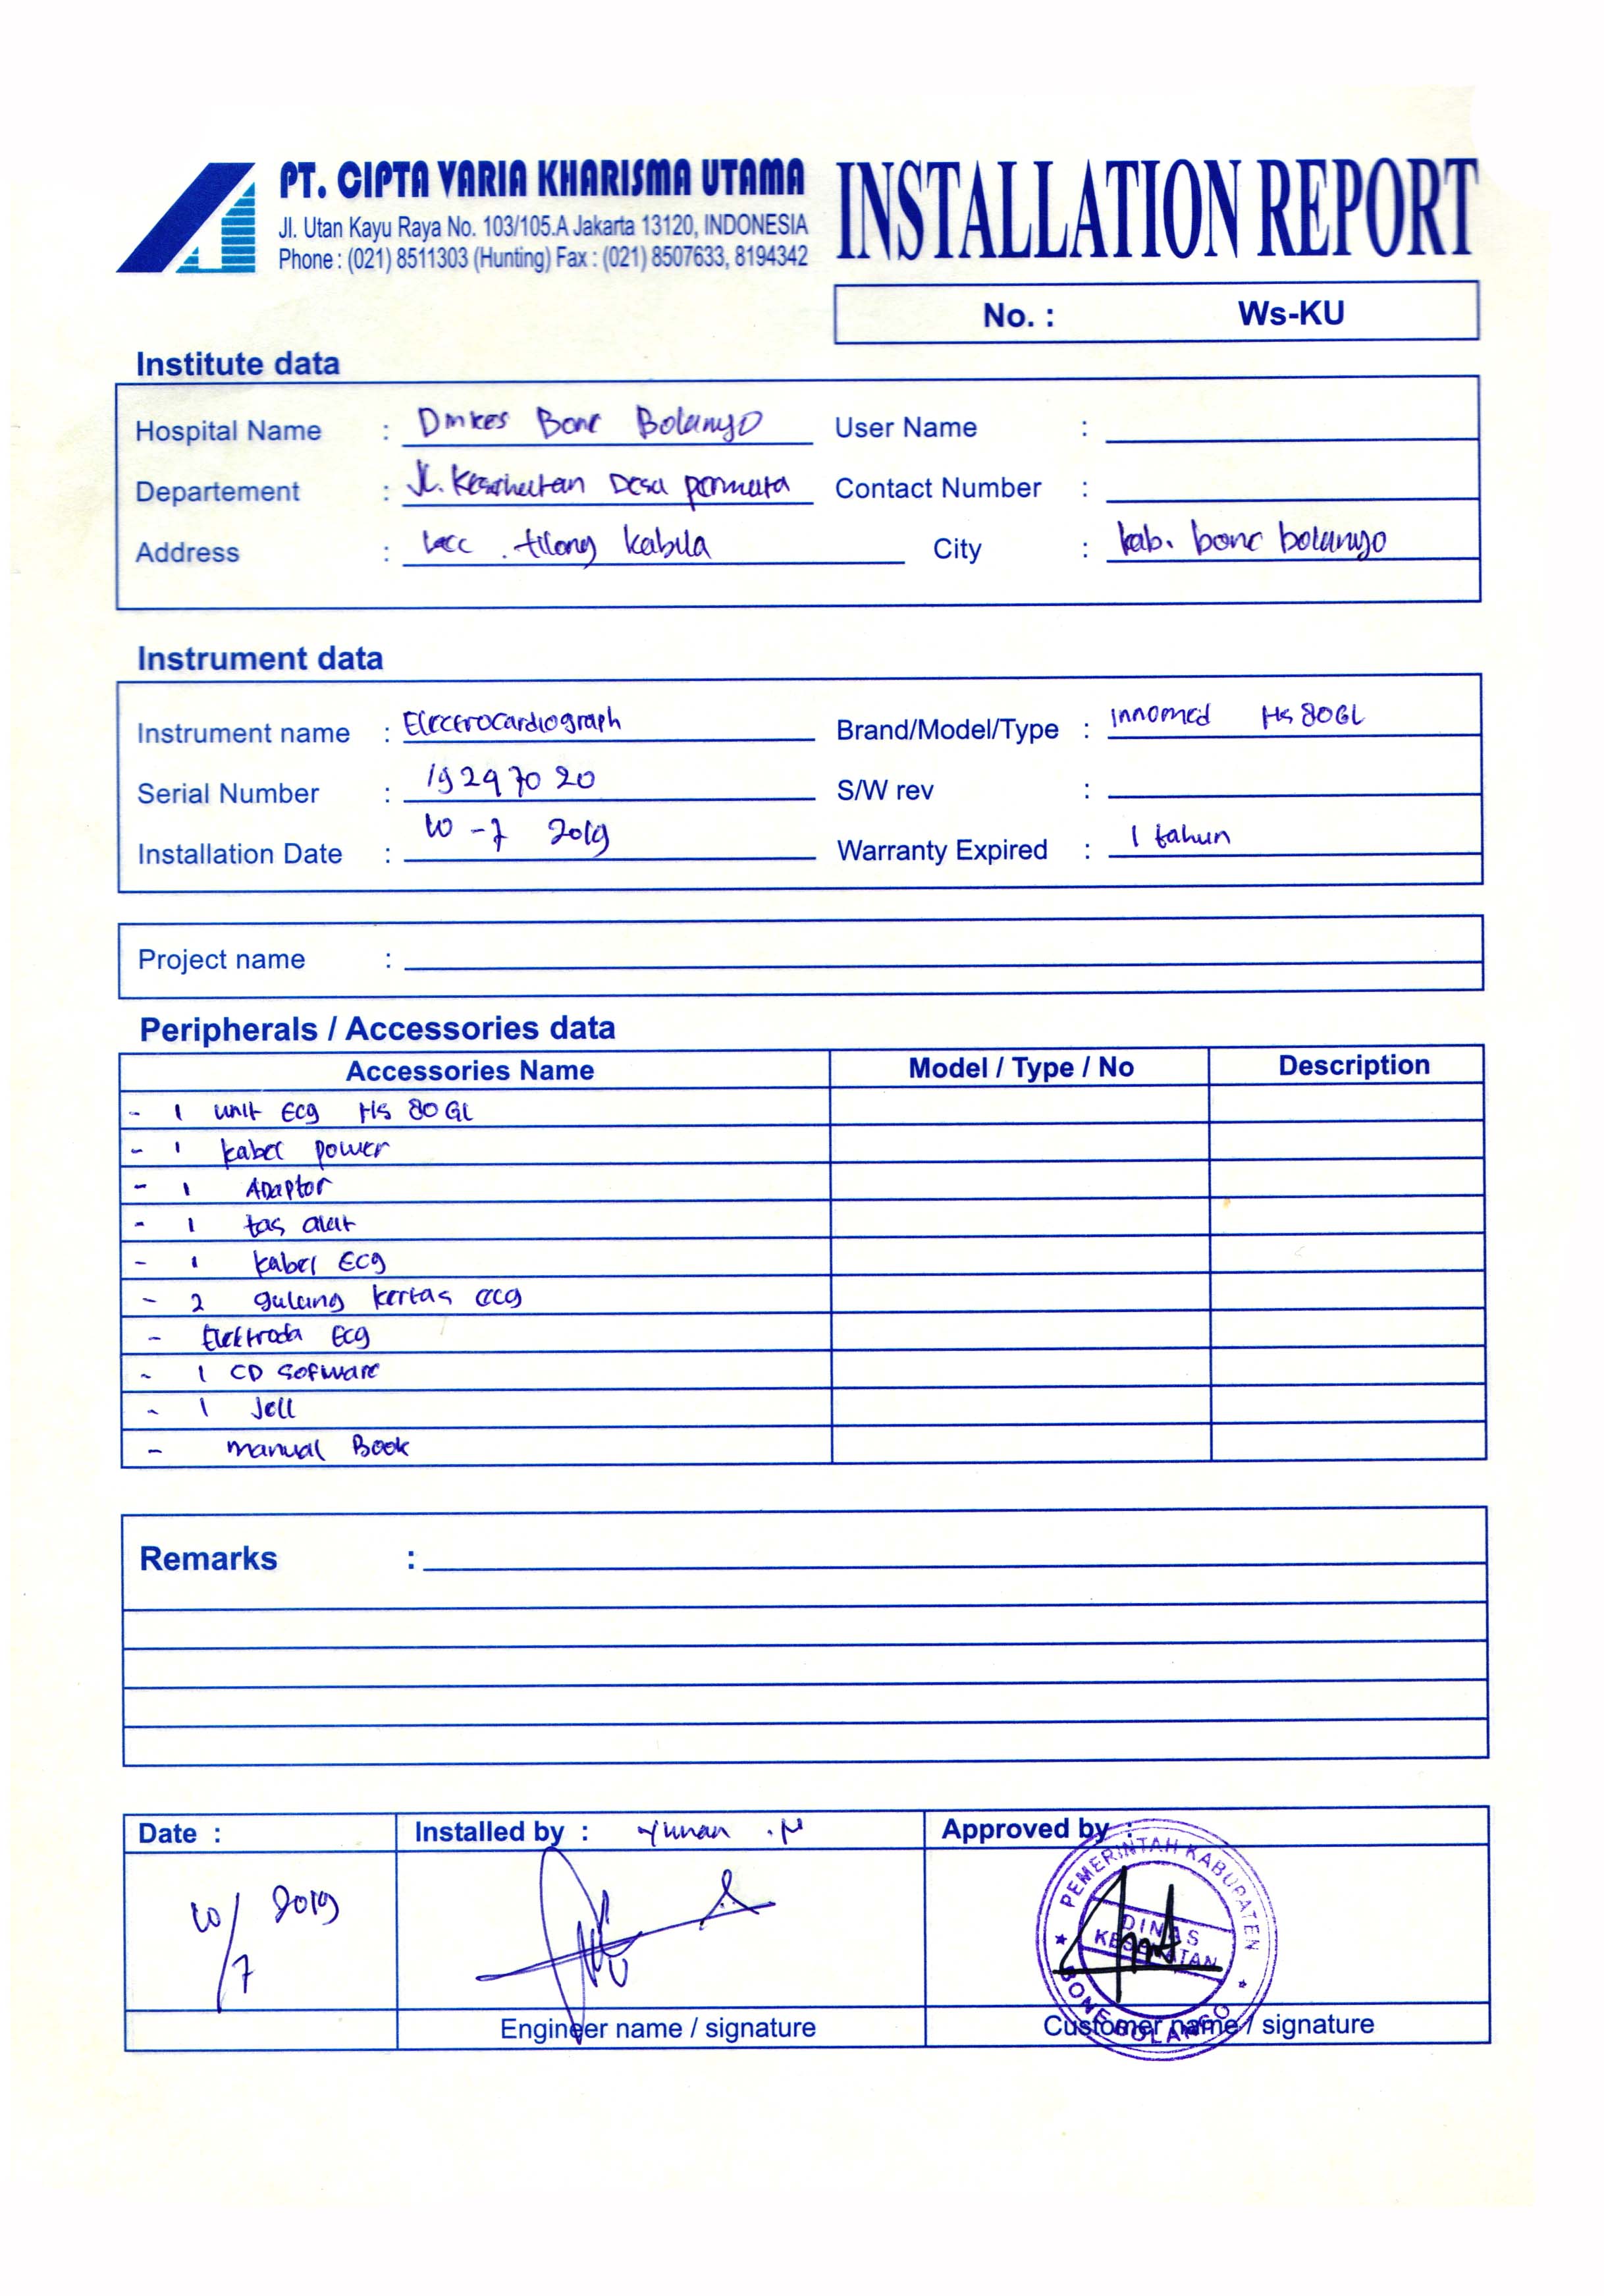 PT. CIPTA VARIA KHARISMA UTAMA
Jl. Utan Kayu Raya No. 103/105.A Jakarta 13120, INDONESIA
Phone : (021) 8511303 (Hunting) Fax : (021) 8507633, 8194342
INSTALLATION REPORT
No. : Ws-KU
Institute data
Hospital Name : Dinkes Bone Bolango User Name :
Departement : Jl. Kesehatan Desa permata Contact Number :
Address : kec . tilong kabila City : kab. bone bolango
Instrument data
Instrument name : Electrocardiograph Brand/Model/Type : innomed Hs 80GL
Serial Number : 19297020 S/W rev :
Installation Date : 10 - 7 2019 Warranty Expired : 1 tahun
Project name :
Peripherals / Accessories data
Accessories Name Model / Type / No Description
- 1 unit Ecg Hs 80 GL
- 1 kabel power
- 1 ADaptor
- 1 tas alat
- 1 kabel Ecg
- 2 gulung kertas ecg
- Elektroda Ecg
- 1 CD Sofware
- 1 Jell
- manual Book
Remarks :
Date : Installed by : Yunan . N Approved by :
10/7 2019
PEMERINTAH KABUPATEN
DINAS
KESEHATAN
BONE BOLANGO
Engineer name / signature Customer name / signature